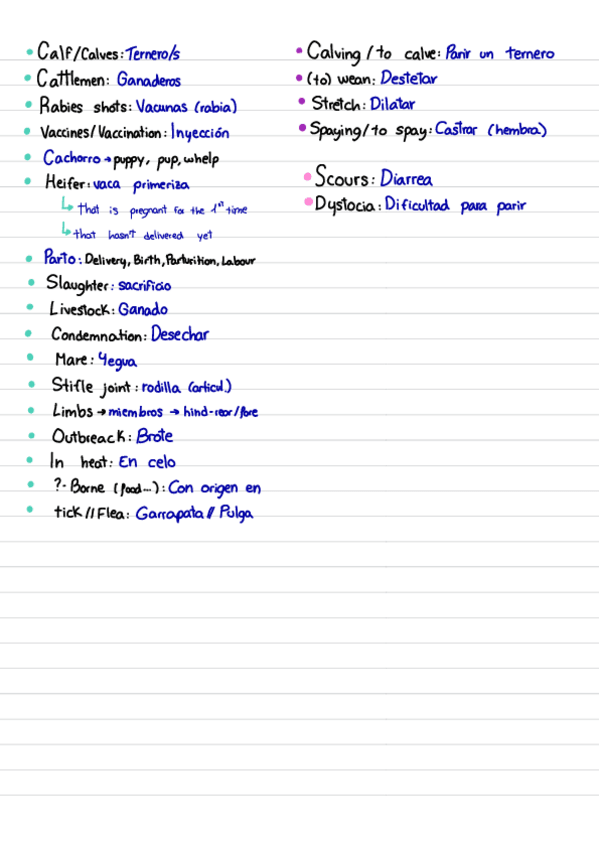 Calf/Calves: Ternero/s
Cattlemen: Ganaderos
Rabies shots: Vacunas (rabia)
Vaccines/Vaccination: Inyección
Cachorro → puppy, pup, whelp
Heifer: vaca primeriza
↳ that is pregnant for the 1st time
↳ that hasn't delivered yet
Parto: Delivery, Birth, Parturition, Labour
Slaughter: sacrificio
Livestock: Ganado
Condemnation: Desechar
Mare: Yegua
Stifle joint: rodilla (articul.)
Limbs → miembros → hind-rear/fore
Outbreack: Brote
In heat: En celo
?- Borne (food...): Con origen en
tick // Flea: Garrapata // Pulga
Calving / to calve: Parir un ternero
(to) wean: Destetar
Stretch: Dilatar
Spaying/to spay: Castrar (hembra)
Scours: Diarrea
Dystocia: Dificultad para parir